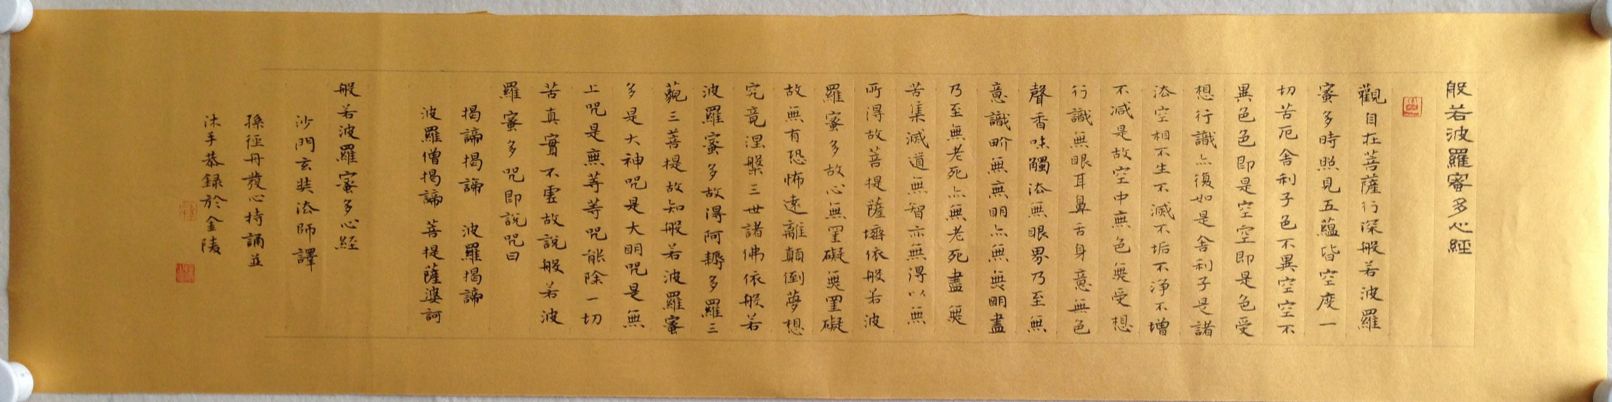 般若波羅蜜多心經
觀自在菩薩行深般若波羅
蜜多時照見五蘊皆空度一
切苦厄舍利子色不異空空不
異色色即是空空即是色受
想行識亦復如是舍利子是諸
法空相不生不滅不垢不淨不增
不減是故空中無色無受想
行識無眼耳鼻舌身意無色
聲香味觸法無眼界乃至無
意識界無無明亦無無明盡
乃至無老死亦無老死盡無
苦集滅道無智亦無得以無
所得故菩提薩埵依般若波
羅蜜多故心無罣礙無罣礙
故無有恐怖遠離顛倒夢想
究竟涅槃三世諸佛依般若
波羅蜜多故得阿耨多羅三
藐三菩提故知般若波羅蜜
多是大神咒是大明咒是無
上咒是無等等咒能除一切
苦真實不虛故說般若波
羅蜜多咒即說咒曰
揭諦揭諦 波羅揭諦
波羅僧揭諦 菩提薩婆訶
般若波羅蜜多心經
沙門玄奘法師譯
孫徑丹發心持誦並
沐手恭錄於金陵